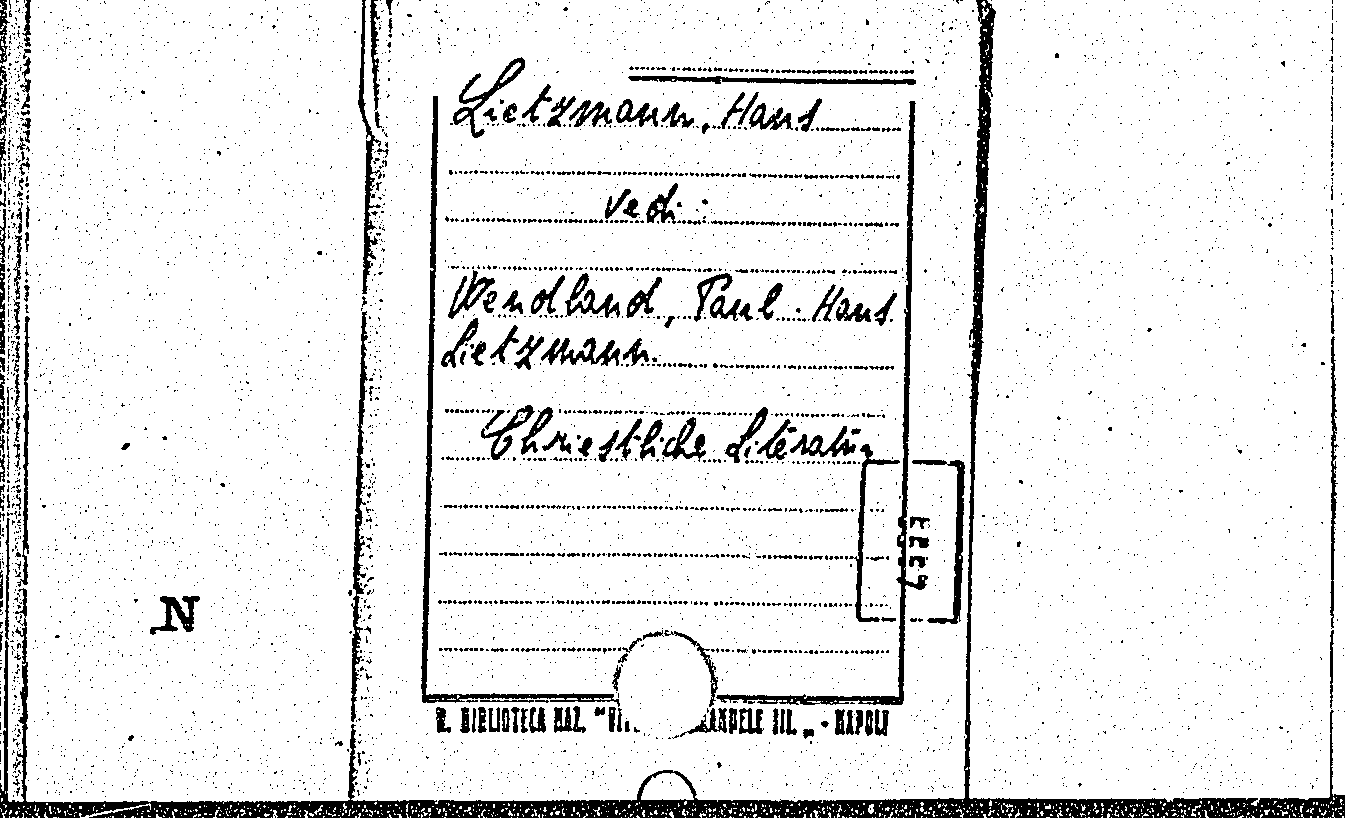 Lietzmann, Hans
vedi:
Wendland, Paul - Hans
Lietzmann.
Chriestliche Literatur
N
R. BIBLIOTECA NAZ. "VIT ANUELE III. „ - NAPOLI